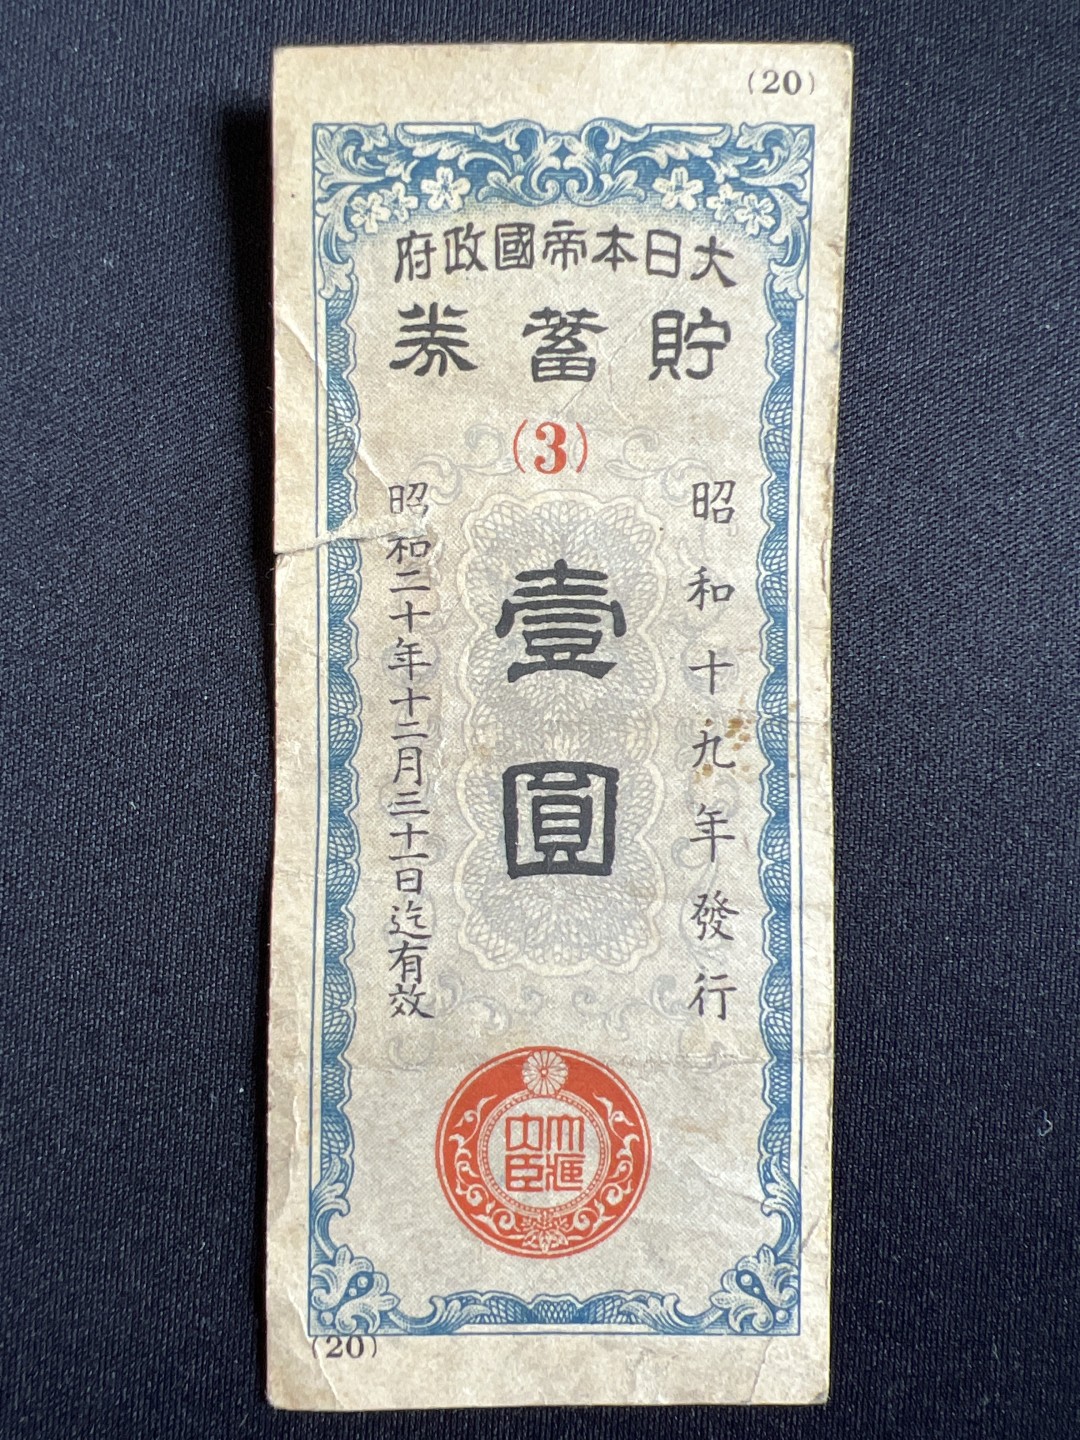 (20)
大日本帝國政府
貯蓄券
(3)
昭和十九年發行
壹圓
昭和二十年十二月三十一日迄有效
大藏大臣
(20)